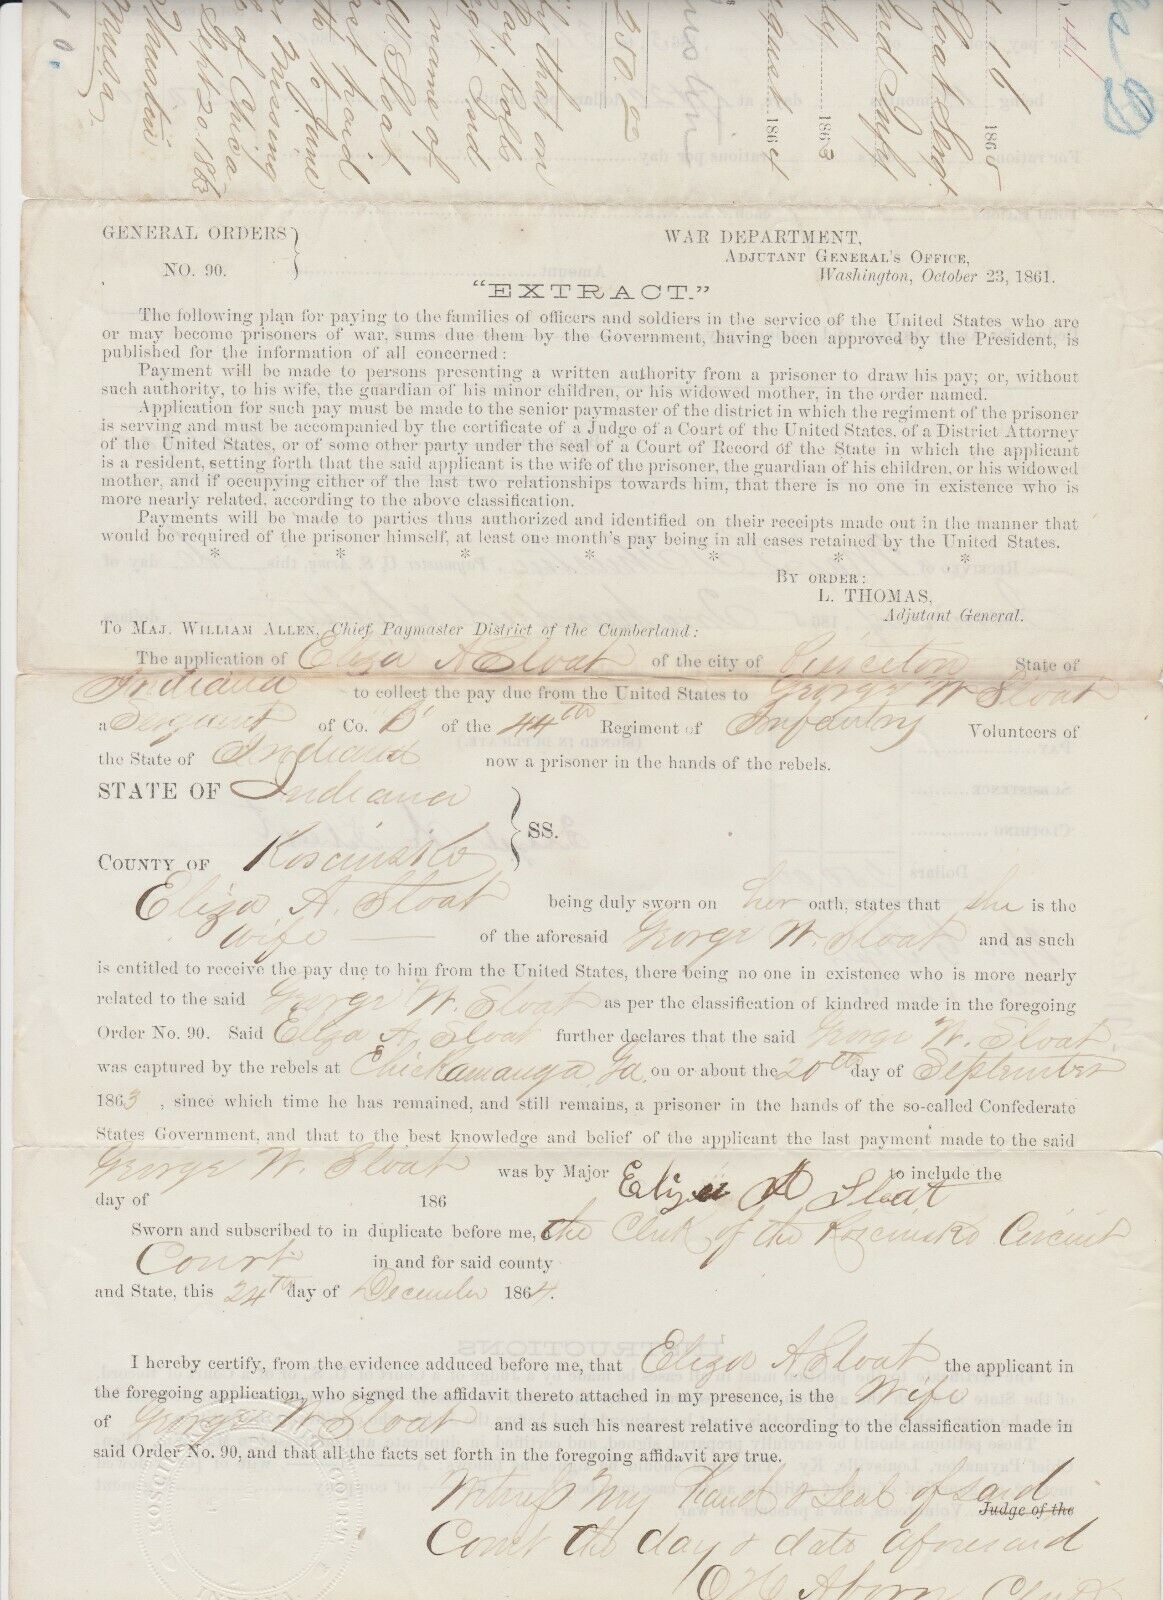 16 1865
Sloat Sergt
44 Ind Infty
July 1863
August 1864
250.00
that on
Pay Rolls
Regt Ind
name of
W. Sloat
paid
to June
Missing
of Chica-
Sept 20. 1863
GENERAL ORDERS }
NO. 90.
WAR DEPARTMENT,
ADJUTANT GENERAL'S OFFICE,
Washington, October 23, 1861.
"EXTRACT."
The following plan for paying to the families of officers and soldiers in the service of the United States who are
or may become prisoners of war, sums due them by the Government, having been approved by the President, is
published for the information of all concerned:
Payment will be made to persons presenting a written authority from a prisoner to draw his pay; or, without
such authority, to his wife, the guardian of his minor children, or his widowed mother, in the order named.
Application for such pay must be made to the senior paymaster of the district in which the regiment of the prisoner
is serving and must be accompanied by the certificate of a Judge of a Court of the United States, of a District Attorney
of the United States, or of some other party under the seal of a Court of Record of the State in which the applicant
is a resident, setting forth that the said applicant is the wife of the prisoner, the guardian of his children, or his widowed
mother, and if occupying either of the last two relationships towards him, that there is no one in existence who is
more nearly related, according to the above classification.
Payments will be made to parties thus authorized and identified on their receipts made out in the manner that
would be required of the prisoner himself, at least one month's pay being in all cases retained by the United States.
* * * * * * *
BY ORDER:
L. THOMAS,
Adjutant General.
TO MAJ. WILLIAM ALLEN, Chief Paymaster District of the Cumberland:
The application of Eliza A Sloat of the city of Pierceton State of
Indiana to collect the pay due from the United States to George W Sloat
a Sergeant of Co. B of the 44th Regiment of Infantry Volunteers of
the State of Indiana now a prisoner in the hands of the rebels.
STATE OF Indiana
} SS.
COUNTY OF Kosciusko
Eliza A. Sloat being duly sworn on her oath, states that she is the
wife — of the aforesaid George W. Sloat and as such
is entitled to receive the pay due to him from the United States, there being no one in existence who is more nearly
related to the said George W. Sloat as per the classification of kindred made in the foregoing
Order No. 90. Said Eliza A Sloat further declares that the said George W. Sloat
was captured by the rebels at Chickamauga Ga on or about the 20th day of September
1863, since which time he has remained, and still remains, a prisoner in the hands of the so-called Confederate
States Government, and that to the best knowledge and belief of the applicant the last payment made to the said
George W. Sloat was by Major to include the
Eliza A Sloat
day of 186
Sworn and subscribed to in duplicate before me, the Clerk of the Kosciusko Circuit
Court in and for said county
and State, this 24th day of December 1864.
I hereby certify, from the evidence adduced before me, that Eliza A Sloat the applicant in
the foregoing application, who signed the affidavit thereto attached in my presence, is the Wife
of George W Sloat and as such his nearest relative according to the classification made in
said Order No. 90, and that all the facts set forth in the foregoing affidavit are true.
Witness my hand & seal of said
Judge of the
Court the day & date aforesaid